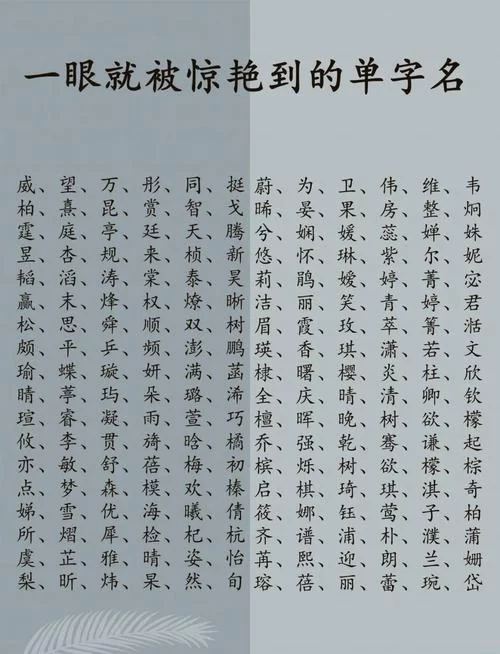 一眼就被惊艳到的单字名
威、望、万、彤、同、挺蔚、为、卫、伟、维、韦
柏、熹、昆、赏、智、戈晞、晏、果、房、整、炯
霆、庭、亭、廷、天、腾兮、娴、媛、蕊、婵、姝
昱、杏、规、来、桢、新悠、怀、琳、紫、尔、妮
韬、滔、涛、棠、泰、昊莉、鹃、嫒、婷、菁、宓
赢、末、烽、权、燎、晰洁、丽、笑、青、婷、君
松、思、舜、顺、双、树眉、霞、玫、萃、箐、湉
颇、平、乒、频、澎、鹏瑛、香、琪、潇、若、文
瑜、蝶、璇、妍、满、菡棣、曙、樱、炎、柱、欣
晴、葶、玙、朵、璐、浠全、庆、晴、清、卿、钦
瑄、睿、凝、雨、萱、巧檀、晖、晚、树、欲、檬
攸、李、贯、旖、晗、橘乔、强、乾、骞、谦、起
亦、敏、舒、蓓、梅、初槟、烁、树、欲、檬、棕
点、梦、森、模、欢、榛启、棋、琦、琪、淇、奇
娣、雪、优、海、曦、倩筱、娜、钰、莺、子、柏
所、熠、犀、检、杞、杭齐、谱、浦、朴、濮、蒲
虞、芷、雅、晴、姿、怡苒、熙、迎、朗、兰、姗
梨、昕、炜、杲、然、旬瑢、蓓、丽、蕾、琬、岱